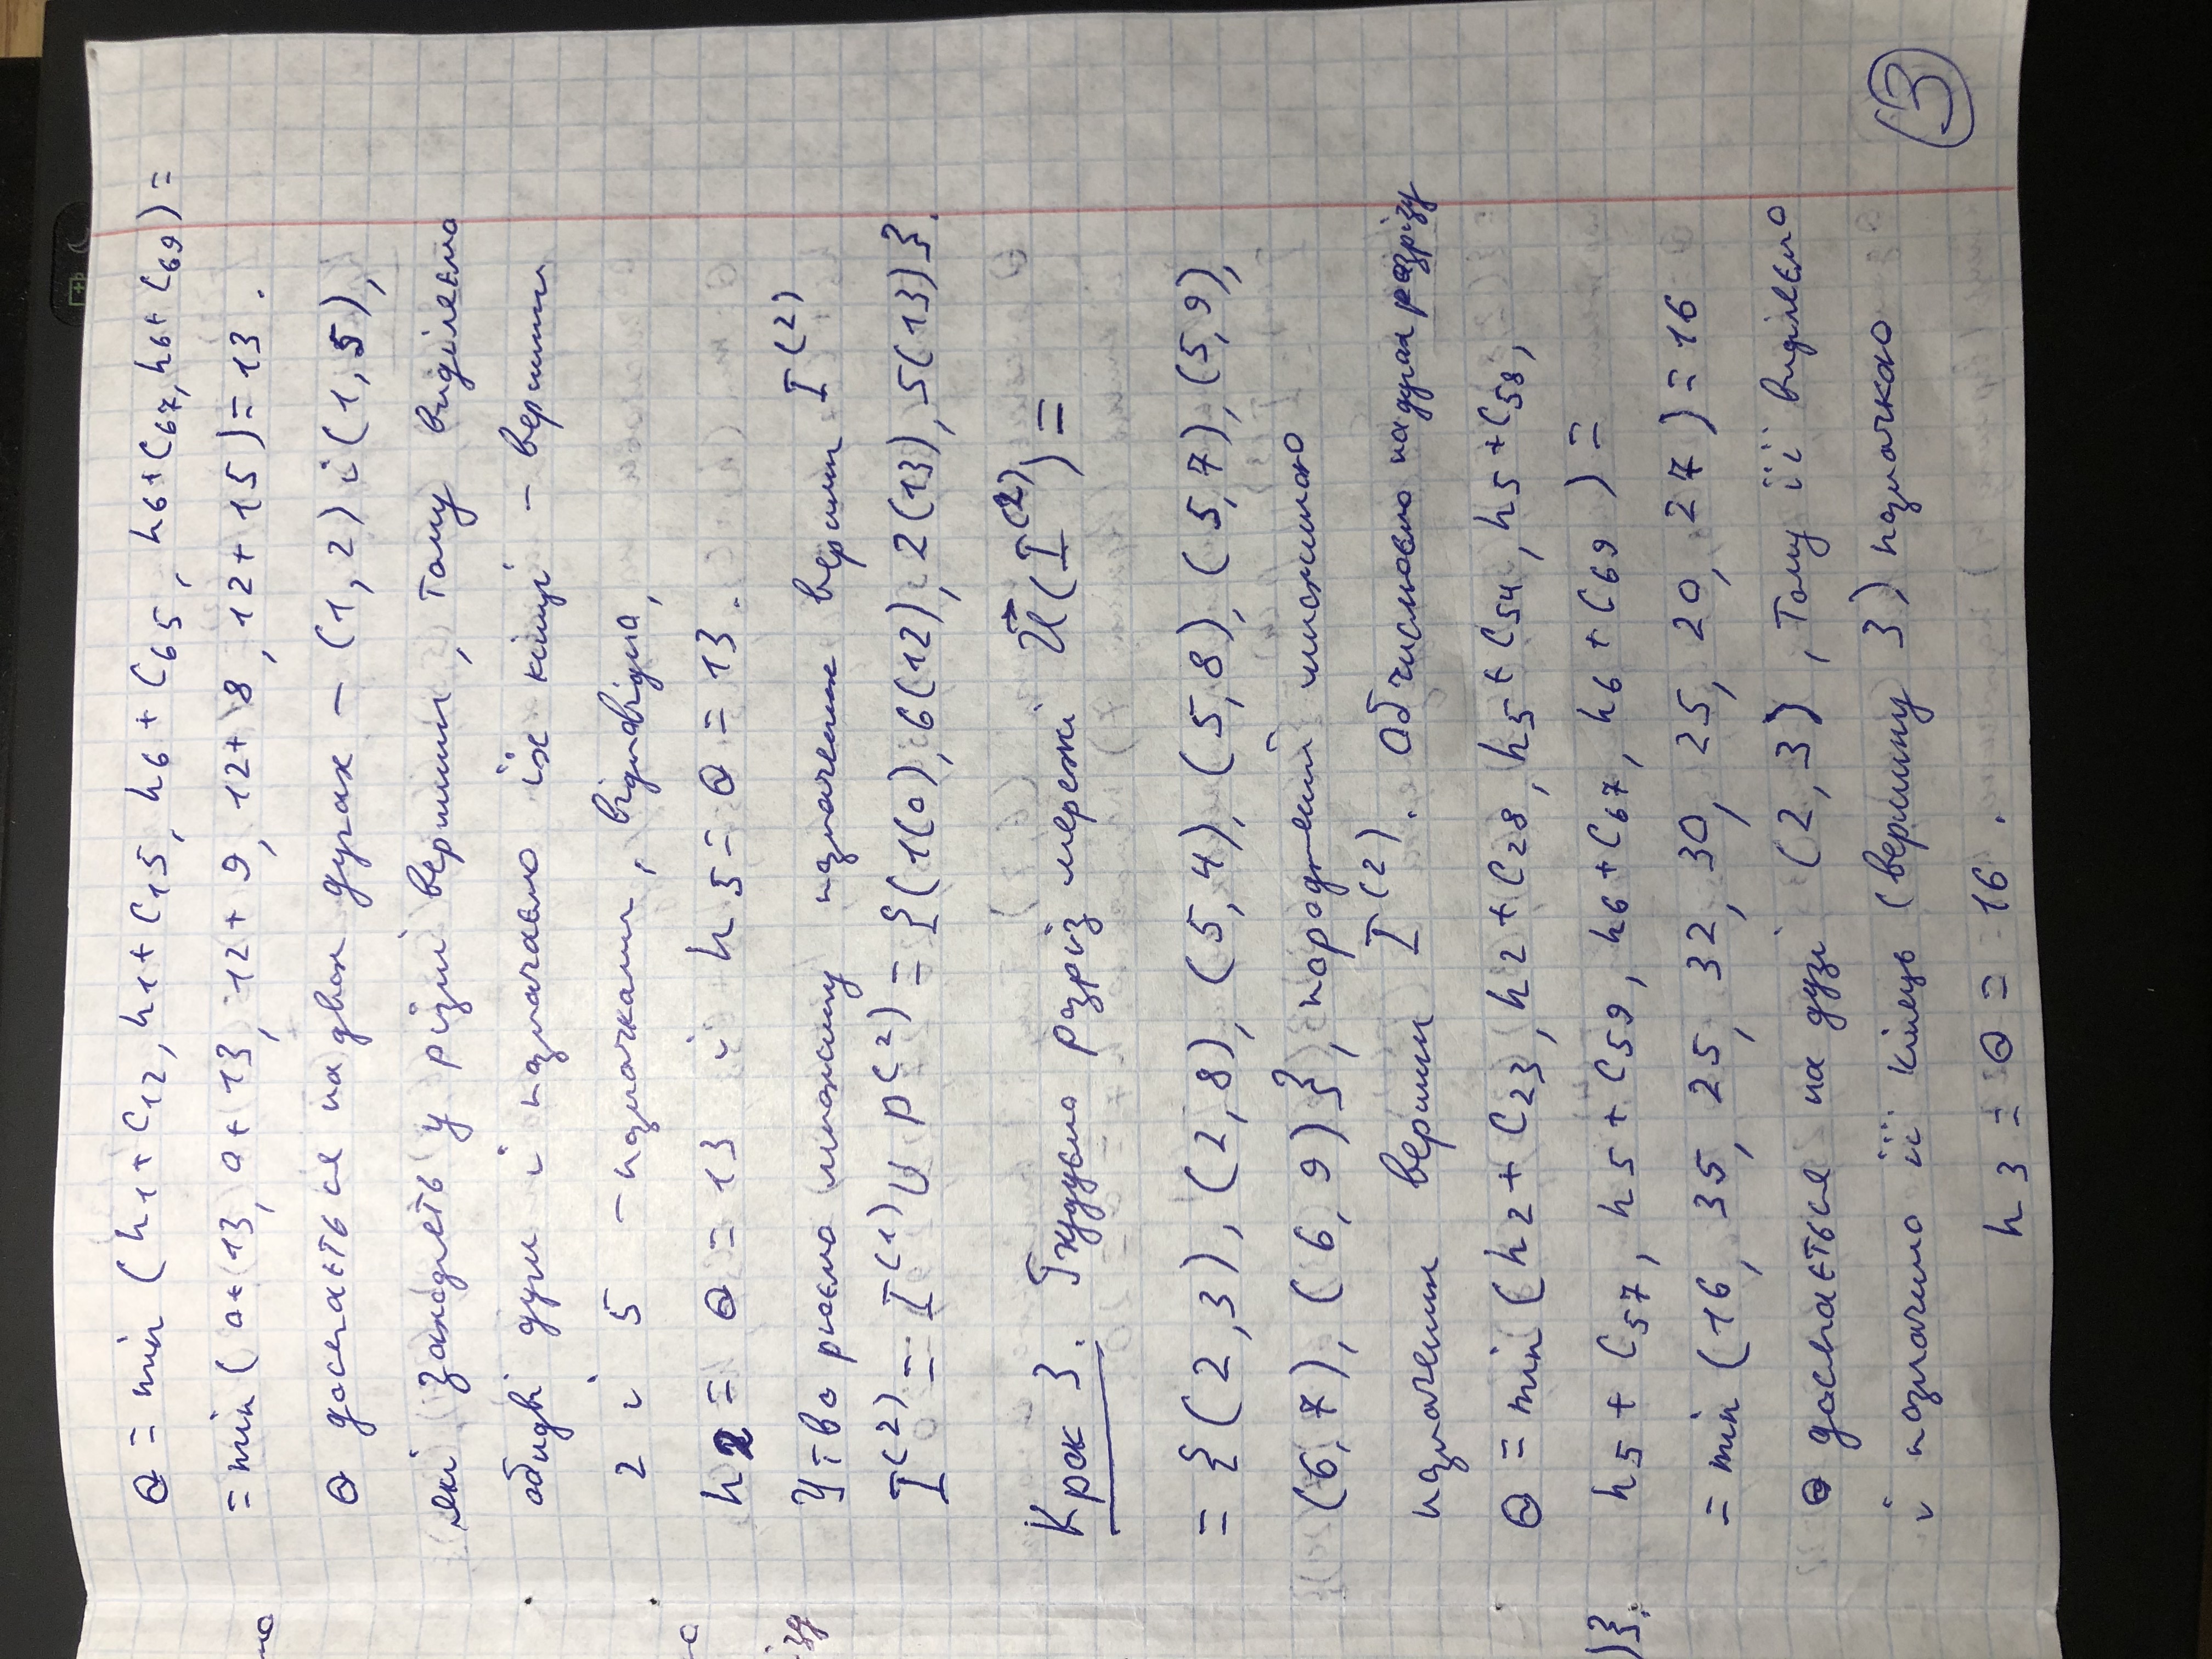 θ = min (h1 + C12, h1 + C15, h6 + C65, h6 + C67, h6 + C69) =
= min (0 + 13, 0 + 13, 12 + 9, 12 + 8, 12 + 15) = 13.
θ досягається на двох дугах – (1, 2) і (1, 5),
які заходять у різні вершини, тому виділяємо
обидві дуги і позначаємо їх кінці – вершини
2 і 5 – позначками, відповідно,
h2 = θ = 13 і h5 = θ = 13.
Утворюємо множину позначених вершин I^(2)
I^(2) = I^(1) ∪ P^(2) = {(1(0), 6(12), 2(13), 5(13)}.
Крок 3. Будуємо розріз мережі U⃗(I^(2)) =
= {(2, 3), (2, 8), (5, 4), (5, 8), (5, 7), (5, 9),
(6, 7), (6, 9)}, породжений множиною
позначених вершин I^(2). Обчислюємо на дугах розрізу
θ = min (h2 + C23, h2 + C28, h5 + C54, h5 + C58,
h5 + C57, h5 + C59, h6 + C67, h6 + C69) =
= min (16, 35, 25, 32, 30, 25, 20, 27) = 16
θ досягається на дузі (2, 3), тому її виділяємо
і позначимо її кінець (вершину 3) позначкою
h3 = θ = 16.
3
)}.